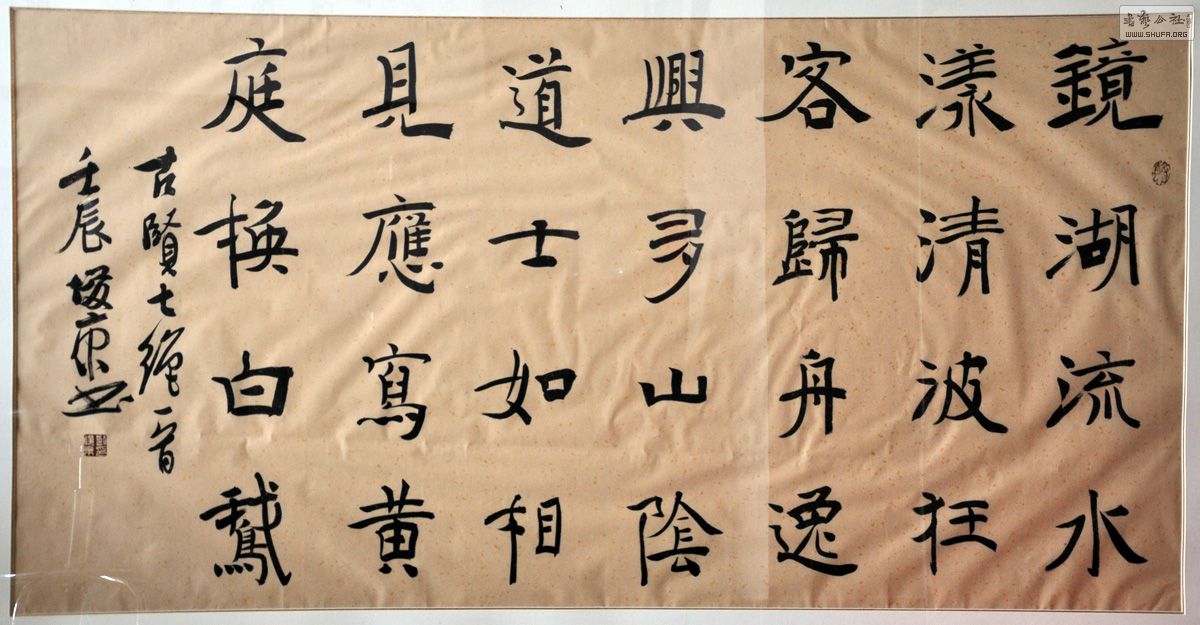 鏡湖流水
漾清波狂
客歸舟逸
興多山陰
道士如相
見應寫黄
庭換白鵝
古賢七絕一首
壬辰 俊康书
書藝公社
WWW.SHUFA.ORG